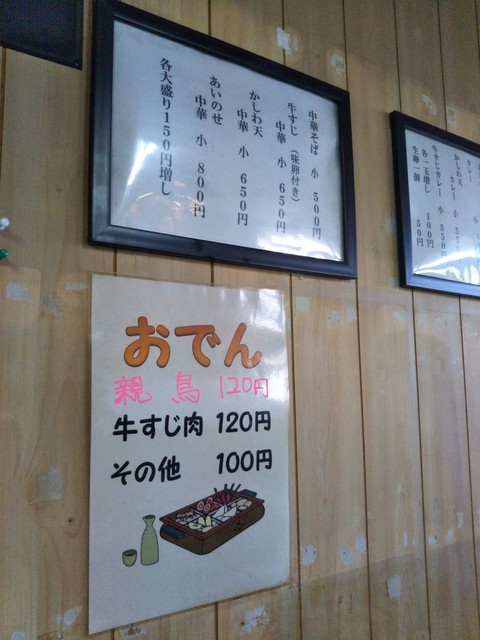 中華そば 小 500円
牛すじ（味卵付き）
中華 小 650円
かしわ天
中華 小 650円
あいのせ
中華 小 800円
各大盛り150円増し
カレー
かしわ天
カレー 小
牛すじカレー 小 550円
各一玉増し 100円
生卵一個 50円
おでん
親鳥 120円
牛すじ肉 120円
その他 100円